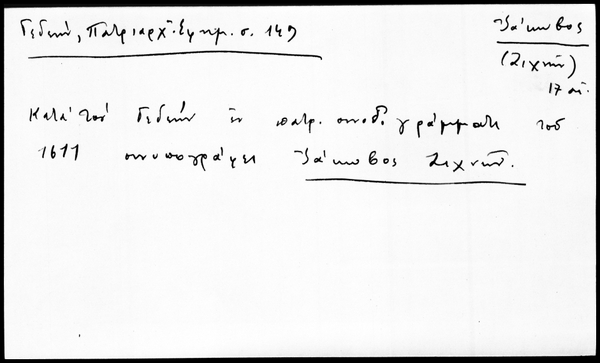 Γεδεών, Πατριαρχ. Εφημ. σ. 149
Ἰάκωβος
(Ζιχνῶν)
17 αι.
Κατά τόν Γεδεών ἐν πατρ. συνοδ. γράμματι τοῦ
1611 συνυπογράφει Ἰάκωβος Ζιχνῶν.